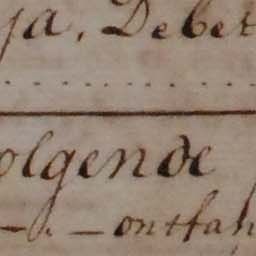 ja, Debet
olgende
ontfan